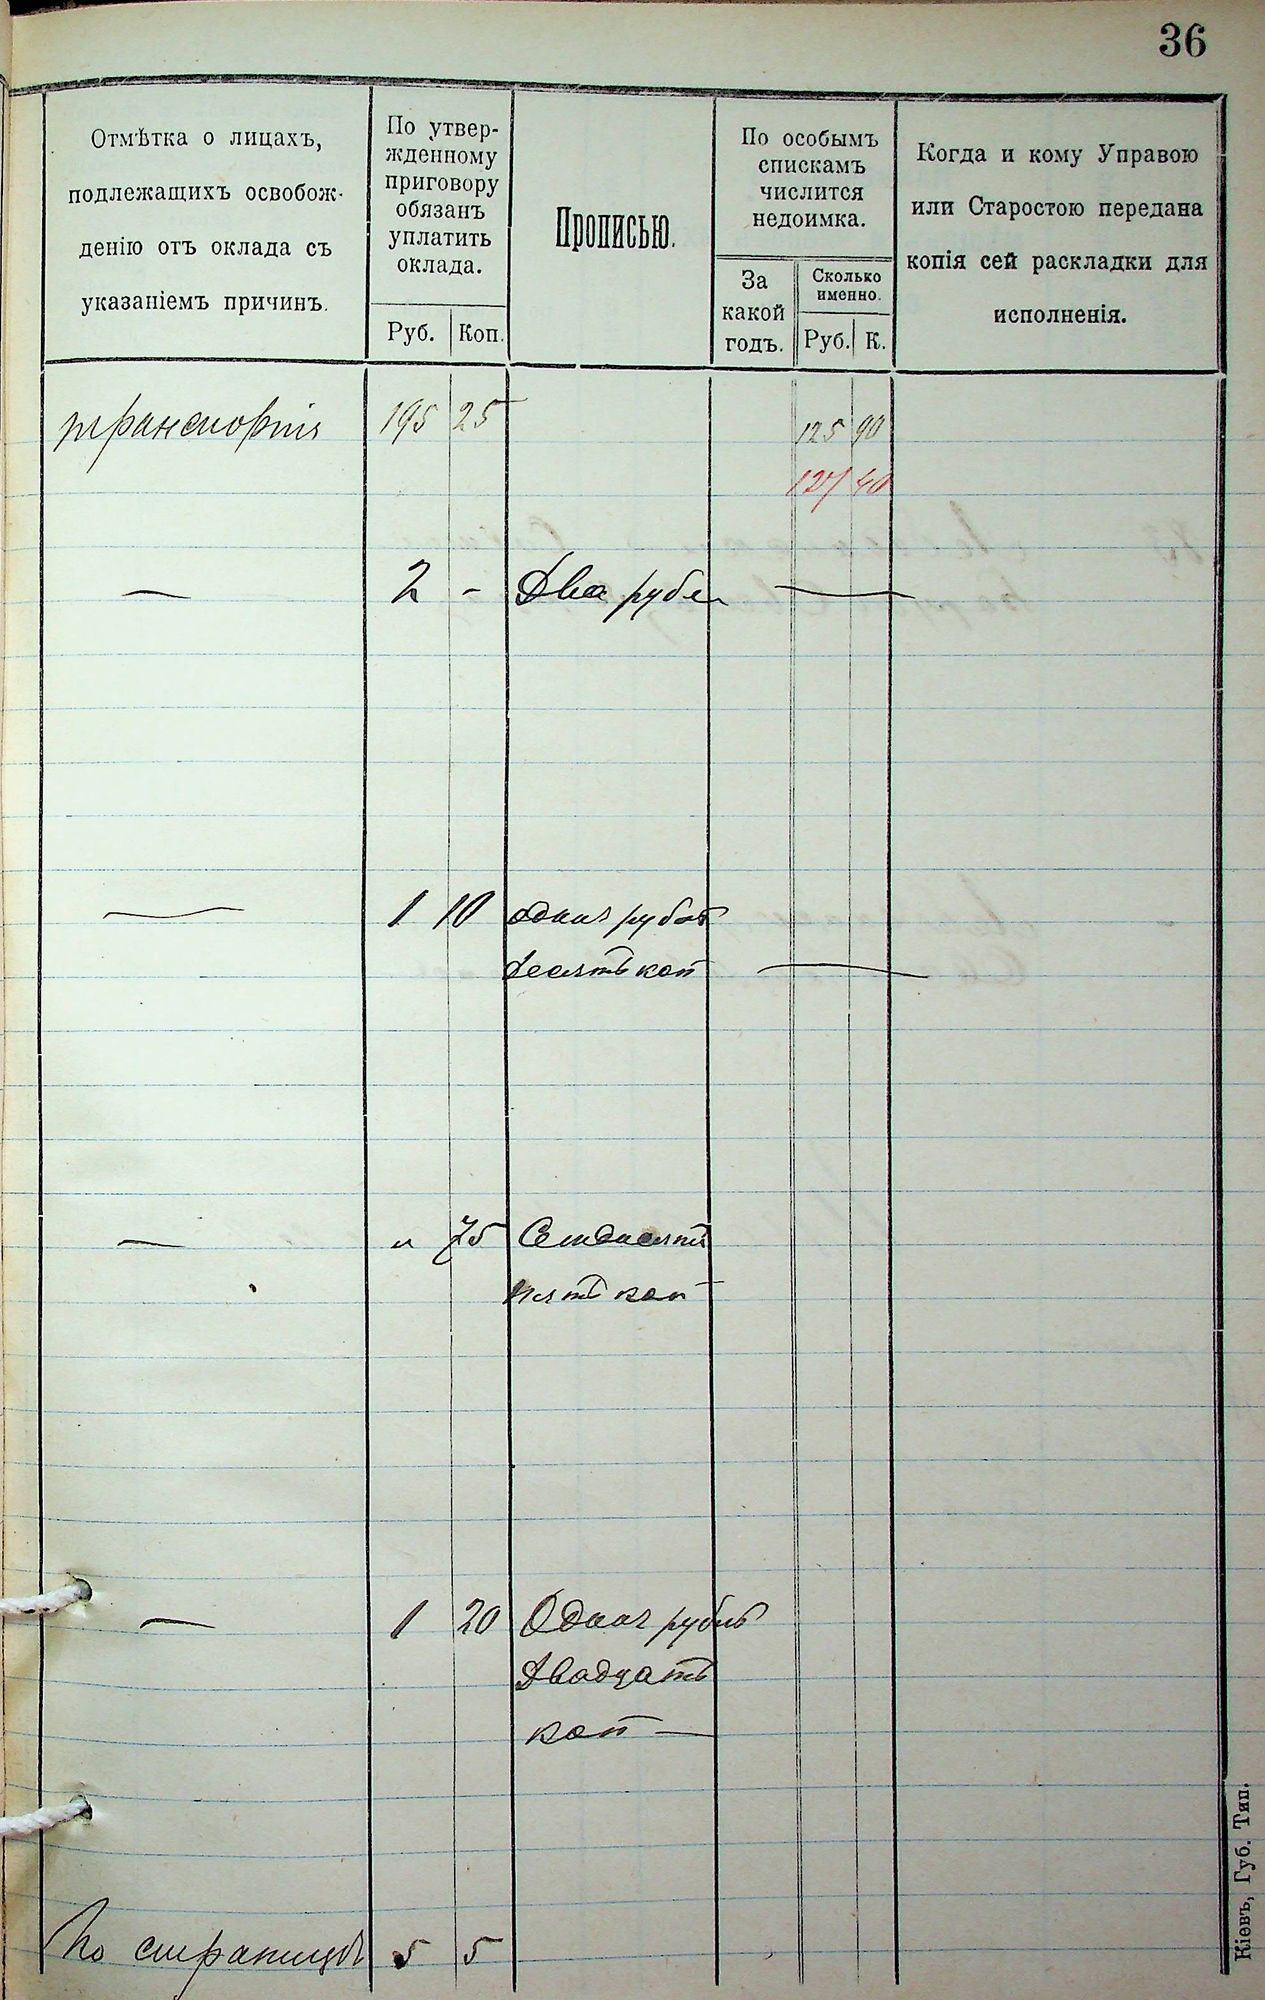 36
Отмѣтка о лицахъ,
подлежащихъ освобож-
денію отъ оклада съ
указаніемъ причинъ.
По утвер-
жденному
приговору
обязанъ
уплатить
оклада.
Руб. Коп.
Прописью.
По особымъ
спискамъ
числится
недоимка.
За
какой
годъ.
Сколько
именно.
Руб. К.
Когда и кому Управою
или Старостою передана
копія сей раскладки для
исполненія.
транспортъ 195 25 125 90
127 40
— 2 - Два рубля —
— 1 10 одинъ рубль
десять коп —
— " 75 Семдесятъ
пять коп
— 1 20 Одинъ рубль
двадцать
коп —
По страницѣ 5 5
Кіевъ, Губ. Тип.